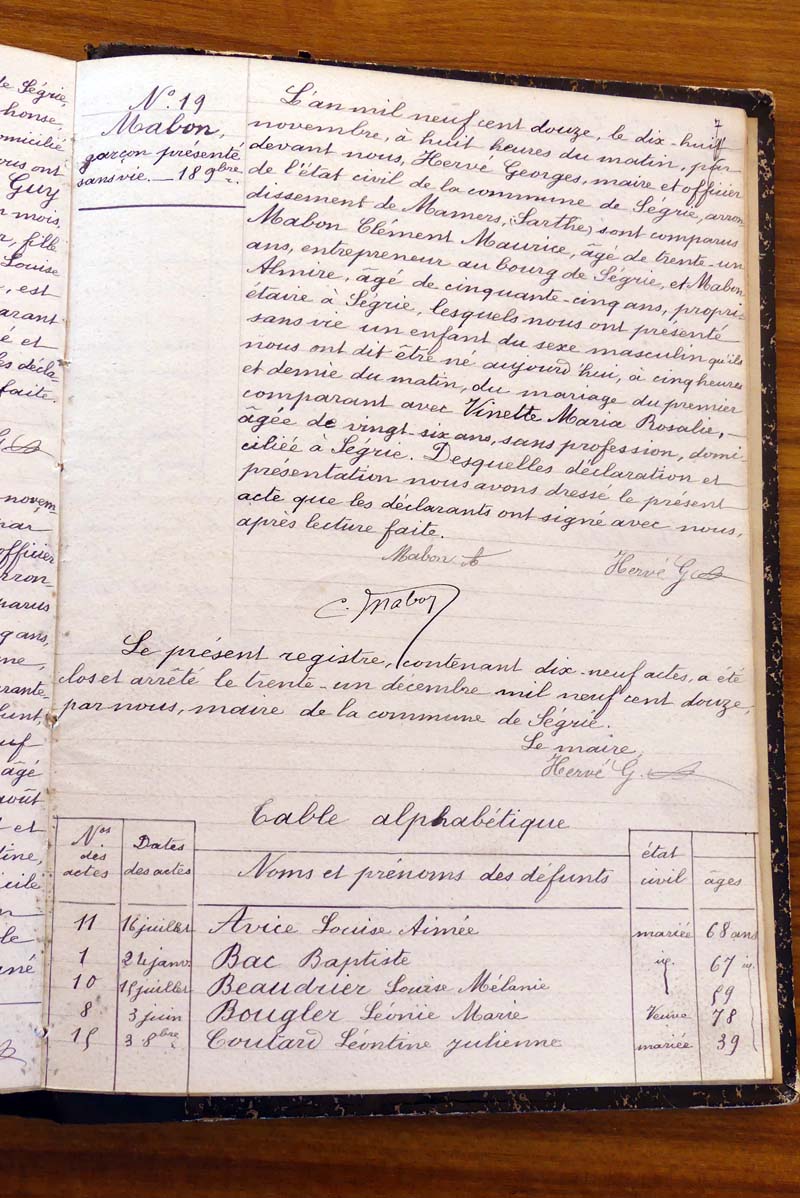 de Ségrie,
phonse,
omicilié
Guy
mois,
fille
Louise
est
arant
é et
es décla-
faite.
N° 19
Mabon,
garçon présenté
sans vie. — 18 9bre.
7
L'an mil neuf cent douze, le dix-huit
novembre, à huit heures du matin, par
devant nous, Hervé Georges, maire et officier
de l'état civil de la commune de Ségrie, arron
dissement de Mamers, (Sarthe) sont comparus
Mabon Clément Maurice, âgé de trente-un
ans, entrepreneur au bourg de Ségrie, et Mabon
Almire, âgé de cinquante-cinq ans, propri-
étaire à Ségrie, lesquels nous ont présenté
sans vie un enfant du sexe masculin qu'ils
nous ont dit être né aujourd'hui, à cinq heures
et demie du matin, du mariage du premier
comparant avec Vinette Maria Rosalie, —
âgée de vingt-six ans, sans profession, domi-
ciliée à Ségrie. Desquelles déclaration et
présentation nous avons dressé le présent
acte que les déclarants ont signé avec nous,
après lecture faite.
Mabon A
Hervé G
C. Mabon
Le présent registre, contenant dix-neuf actes, a été
clos et arrêté le trente-un décembre mil neuf cent douze,
par nous, maire de la commune de Ségrie.
Le maire,
Hervé G.
Table alphabétique
Nos des actes | Dates des actes | Noms et prénoms des défunts | état civil | âges
11 | 16 juillet | Avice Louise Aimée | mariée | 68 ans
1 | 24 janv. | Bac Baptiste | id. | 67 id.
10 | 15 juillet | Beaudrier Louise Mélanie | 59
8 | 3 juin | Bougler Léonie Marie | Veuve | 78
15 | 3 8bre | Coutard Léontine Julienne | mariée | 39